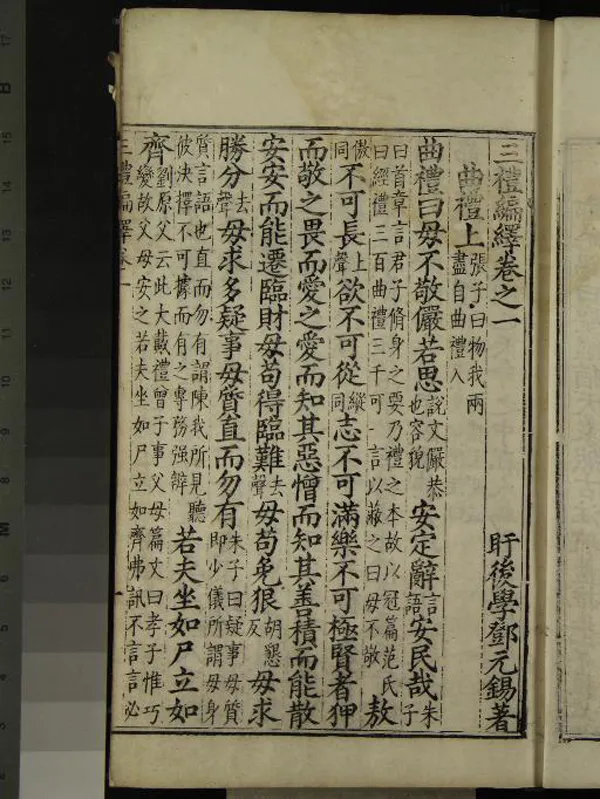 三禮編繹卷之一
盱後學鄧元錫著
曲禮上張子曰物我兩盡自曲禮入
曲禮曰毋不敬儼若思說文儼恭也容貌安定辭言語安民哉朱子
曰首章言君子脩身之要乃禮之本故以冠篇范氏曰經禮三百曲禮三千可一言以蔽之曰毋不敬敖
傲同不可長上聲欲不可從縱同志不可滿樂不可極賢者狎
而敬之畏而愛之愛而知其惡憎而知其善積而能散
安安而能遷臨財毋苟得臨難去聲毋苟免狠胡懇反毋求
勝分去聲毋求多疑事毋質直而勿有朱子曰疑事毋質即少儀所謂毋身
質言語也直而勿有謂陳我所見聽彼決擇不可據而有之專務强辯若夫坐如尸立如
齊劉原父云此大戴禮曾子事父母篇文曰孝子惟巧變故父母安之若夫坐如尸立如齊弗訊不言言必
三禮編繹卷一
一